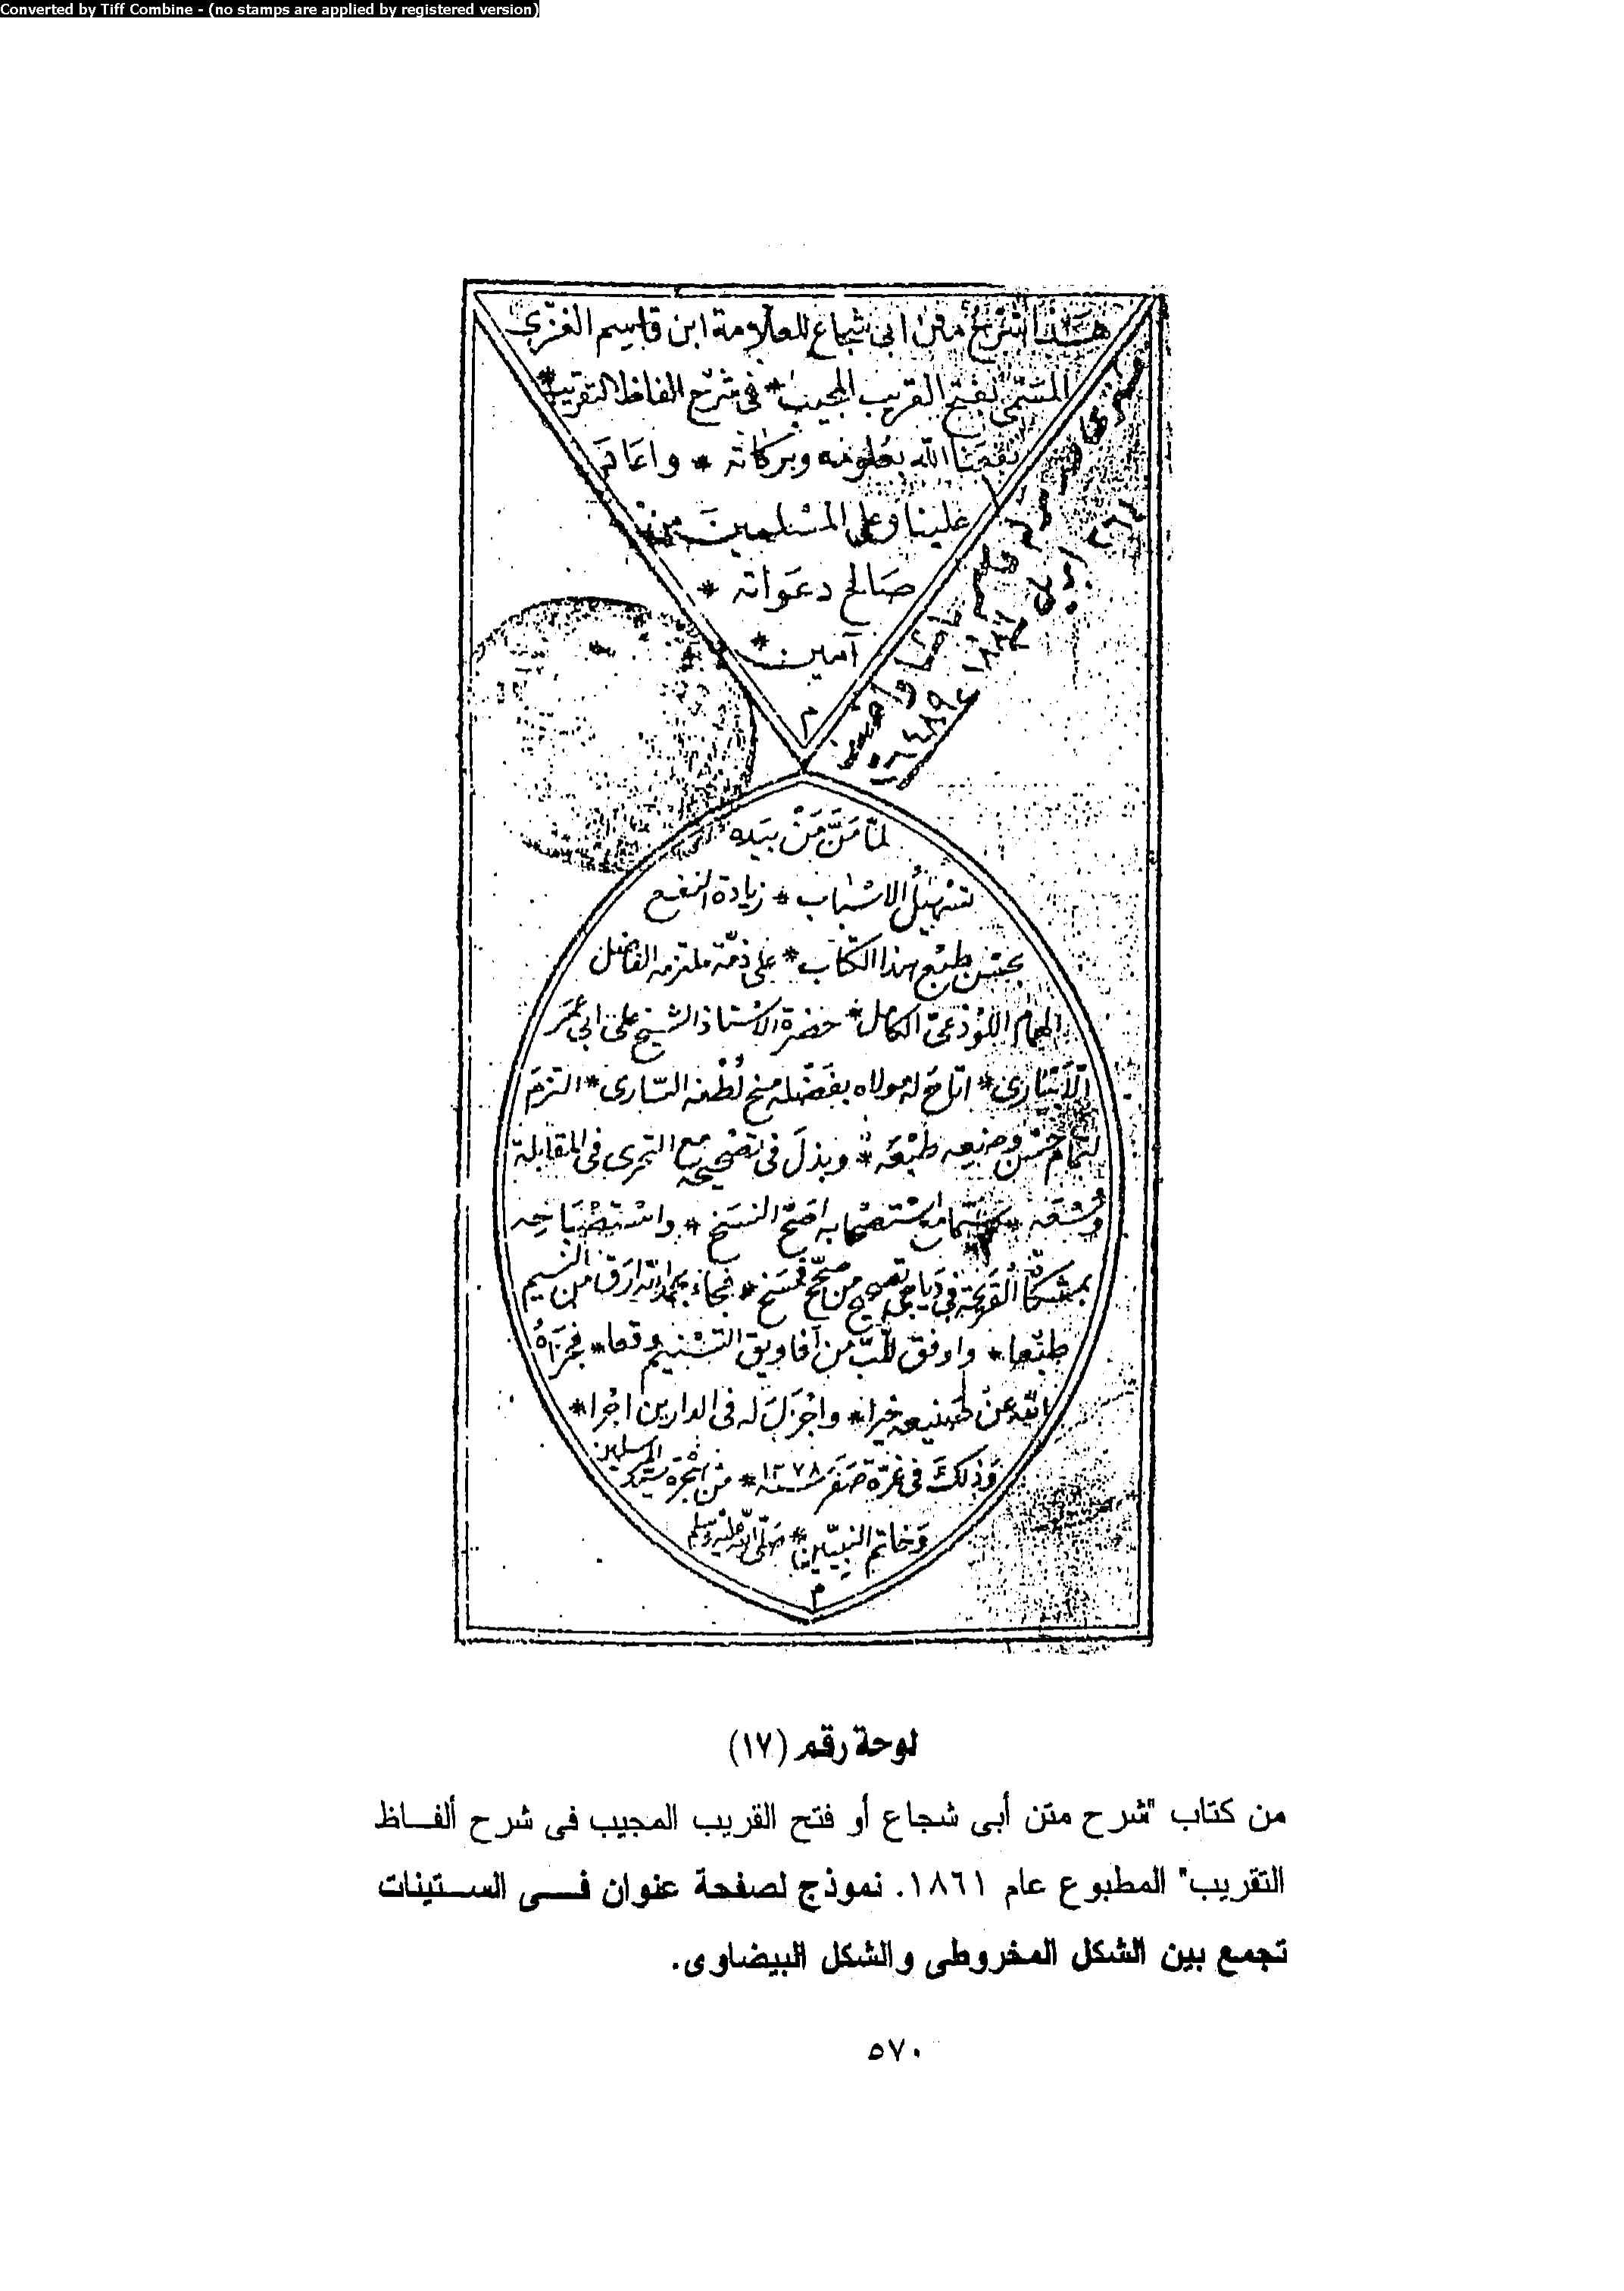 Converted by Tiff Combine - (no stamps are applied by registered version)
هذا شرح متن ابى شجاع للعلامة ابن قاسم الغزى
المسمى بفتح القريب المجيب * فى شرح الفاظ التقريب *
نفعنا الله بعلومه وبركاته * واعاد
علينا وعلى المسلمين من
صالح دعواته *
آمين *
م
لما مَنَّ مَنْ بيده
تسهيل الاسباب * زيادة النفع
بحسن طبع هذا الكتاب * على ذمة ملتزمه الفاضل
الهمام اللوذعى الكامل * حضرة الاستاذ الشيخ على ابى عمر
اتاح له مولاه بفضله منح لطفه السارى * التزم
تمام حسن وضيعه طبعه * وبذل فى تصحيحه مع التحرى فى المقابلة
استصحابه اصح النسخ * واستصباحه
القريحة فى دياجى تصحيح من صحح فسخ * فجاء بحمد الله ارق من النسيم
طبعا * واوفق للب من افاويق التسنيم وقعا * فجزاه
الله عن صنيعه خيرا * واجزل له فى الدارين اجرا *
وذلك فى غرة صفر سنة ١٢٧٨ * من هجرة سيد المسلمين
وخاتم النبيين * صلى الله عليه وسلم
م
لوحة رقم (١٧)
من كتاب "شرح متن أبى شجاع أو فتح القريب المجيب فى شرح ألفاظ
التقريب" المطبوع عام ١٨٦١. نموذج لصفحة عنوان فى الستينات
تجمع بين الشكل المخروطى والشكل البيضاوى.
٥٧٠